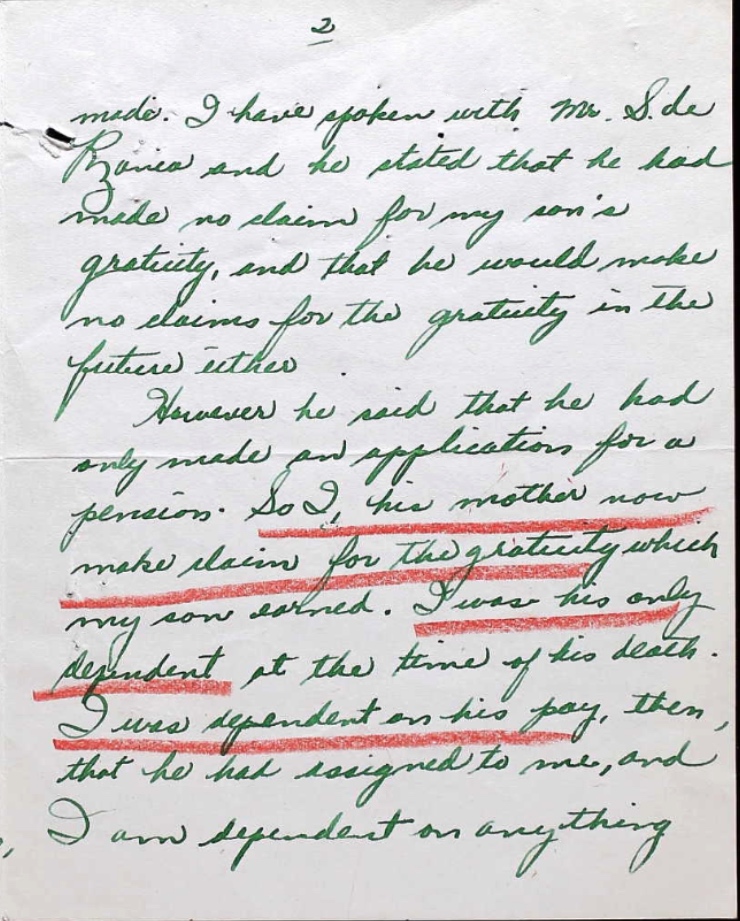 2
made. I have spoken with Mr. S. de
and he stated that he had
made no claim for my son's
gratuity, and that he would make
no claims for the gratuity in the
future either
However he said that he had
only made an application for a
pension. So I, his mother now
make claim for the gratuity which
my son earned. I was his only
dependent at the time of his death.
I was dependent on his pay, then,
that he had assigned to me, and
I am dependent on anything